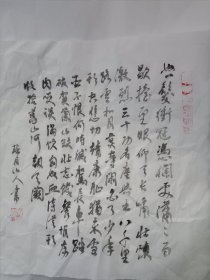 怒髮衝冠憑欄處蕭蕭雨
歇抬望眼仰天長嘯壯懷
激烈三十功名塵與土八千里
路雲和月莫等閒白了少年
頭空悲切靖康恥猶未雪
臣子恨何時滅駕長車踏
破賀蘭山缺壯志飢餐胡虜
肉笑談渴飲匈奴血待從頭
收拾舊山河朝天闕
山人書